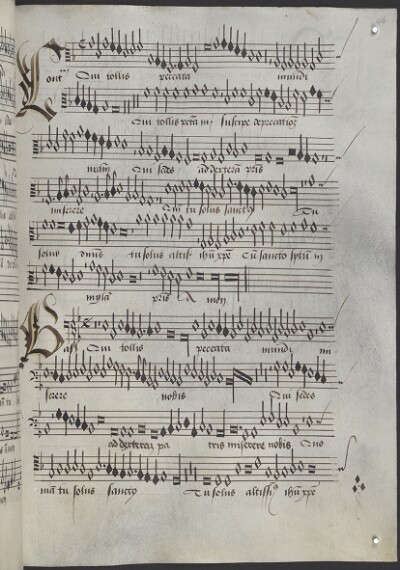 Cont Qui tollis peccata mundi
Qui tollis pctā m suscipe deprecationē
nrām Qui sedes ad dexterā pris
miserere Qui tu solus sanctus Tu
solus dns tu solus altis ihu xpe Cū sancto spiritu in
gloria pris A men
Bass Qui tollis peccata mundi mi
serere nobis Qui sedes
ad dexteraz pa tris miserere nobis Quo
niā tu solus sanctus Tu solus altissi ihu xpe